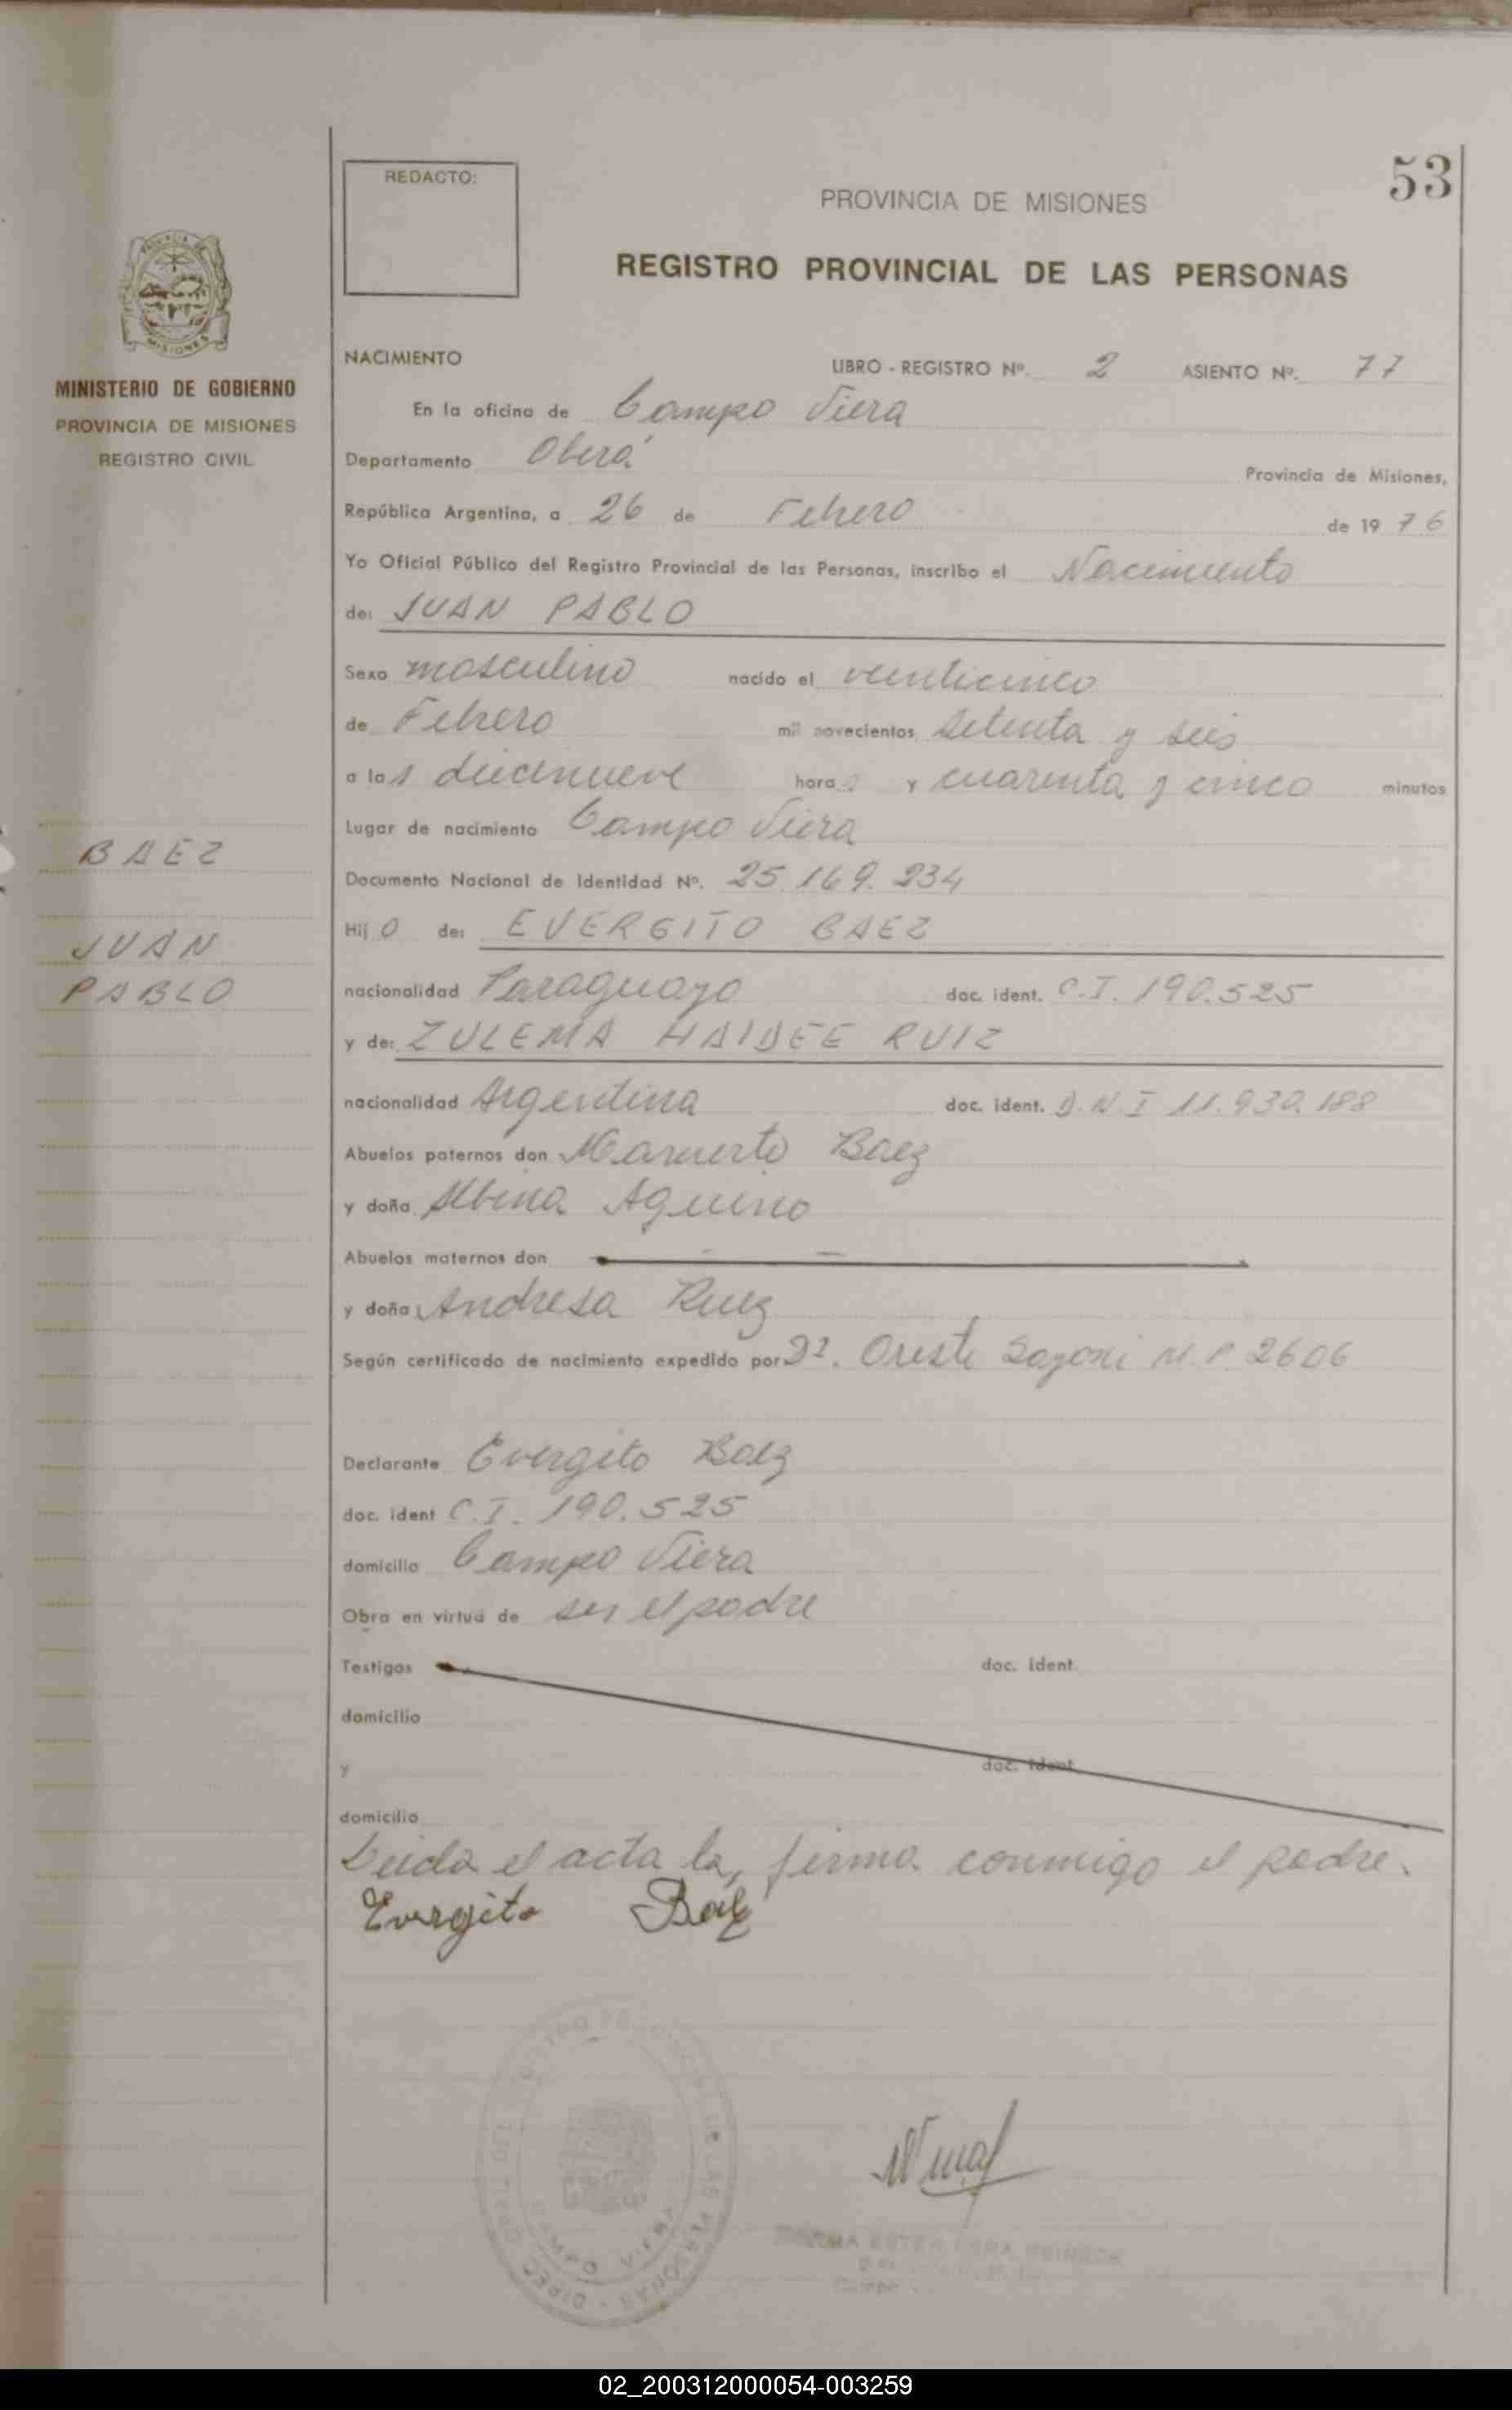 53
REDACTO:
PROVINCIA DE MISIONES
REGISTRO PROVINCIAL DE LAS PERSONAS
MISIONES
MINISTERIO DE GOBIERNO
PROVINCIA DE MISIONES
REGISTRO CIVIL
BAEZ
JUAN
PABLO
NACIMIENTO LIBRO - REGISTRO Nº. 2 ASIENTO Nº. 77
En la oficina de Campo Viera
Departamento Oberá Provincia de Misiones,
República Argentina, a 26 de Febrero de 1976
Yo Oficial Público del Registro Provincial de las Personas, inscribo el Nacimiento
de: JUAN PABLO
Sexo masculino nacido el veinticinco
de Febrero mil novecientos setenta y seis
a las diecinueve horas y cuarenta y cinco minutos
Lugar de nacimiento Campo Viera
Documento Nacional de Identidad Nº. 25.169.234
Hijo de: EVERGITO BAEZ
nacionalidad Paraguayo doc. ident. C.I. 190.525
y de: ZULEMA HAIDEE RUIZ
nacionalidad Argentina doc. ident. D.N.I 11.930.188
Abuelos paternos don Mamerto Baez
y doña Albina Aquino
Abuelos maternos don
y doña Andresa Ruiz
Según certificado de nacimiento expedido por Dr. Oreste M.P. 2606
Declarante Evergito Baez
doc. ident C.I. 190.525
domicilio Campo Viera
Obra en virtud de ser el padre
Testigos doc. ident
domicilio
y doc. ident
domicilio
Leida el acta la, firma conmigo el padre.
Evergito Baez
CAMPO VIERA
02_200312000054-003259